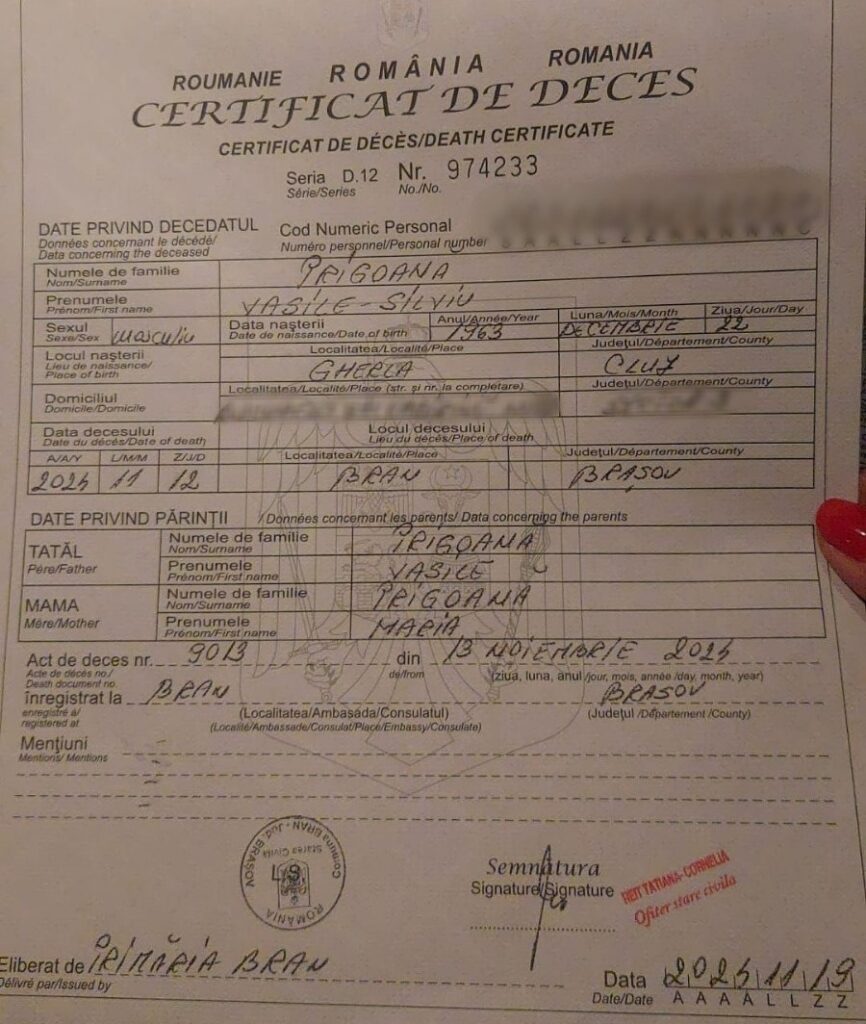 ROUMANIE ROMÂNIA ROMANIA
CERTIFICAT DE DECES
CERTIFICAT DE DÉCÈS/DEATH CERTIFICATE
Seria D.12 Nr. 974233
Série/Series No./No.
DATE PRIVIND DECEDATUL Cod Numeric Personal
Données concernant le décédé/ Numéro personnel/Personal number
Data concerning the deceased
Numele de familie PRIGOANA
Nom/Surname
Prenumele VASILE-SILVIU
Prénom/First name
Sexul masculin Data nașterii Anul/Année/Year Luna/Mois/Month Ziua/Jour/Day
Sexe/Sex Date de naissance/Date of birth 1963 DECEMBRIE 22
Locul nașterii Localitatea/Localité/Place Județul/Département/County
Lieu de naissance/ GHERLA CLUJ
Place of birth
Domiciliul Localitatea/Localité/Place (str. și nr. la completare) Județul/Département/County
Domicile/Domicile
Data decesului Locul decesului
Date du décès/Date of death Lieu du décès/Place of death
A/A/Y L/M/M Z/J/D Localitatea/Localité/Place Județul/Département/County
2024 11 12 BRAN BRAȘOV
DATE PRIVIND PĂRINȚII /Données concernant les parents/ Data concerning the parents
TATĂL Numele de familie PRIGOANA
Père/Father Nom/Surname
Prenumele VASILE
Prénom/First name
MAMA Numele de familie PRIGOANA
Mère/Mother Nom/Surname
Prenumele MARIA
Prénom/First name
Act de deces nr. 9013 din 13 NOIEMBRIE 2024
Acte de décès no./ de/from (ziua, luna, anul /jour, mois, année /day, month, year)
Death document no.
înregistrat la BRAN BRASOV
enregistré a/ (Localitatea/Ambasada/Consulatul) (Județul /Département /County)
registered at (Localité/Ambassade/Consulat/Place/Embassy/Consulate)
Mențiuni
Mentions/ Mentions
ROMANIA
Comuna BRAN - Jud. BRASOV
Starea Civilă
L.S
Semnătura
Signature/Signature
NEIT TATIANA-CORNELIA
Ofiter stare civila
Eliberat de PRIMĂRIA BRAN
Délivré par/Issued by
Data 2024 11 19
Date/Date A A A A L L Z Z